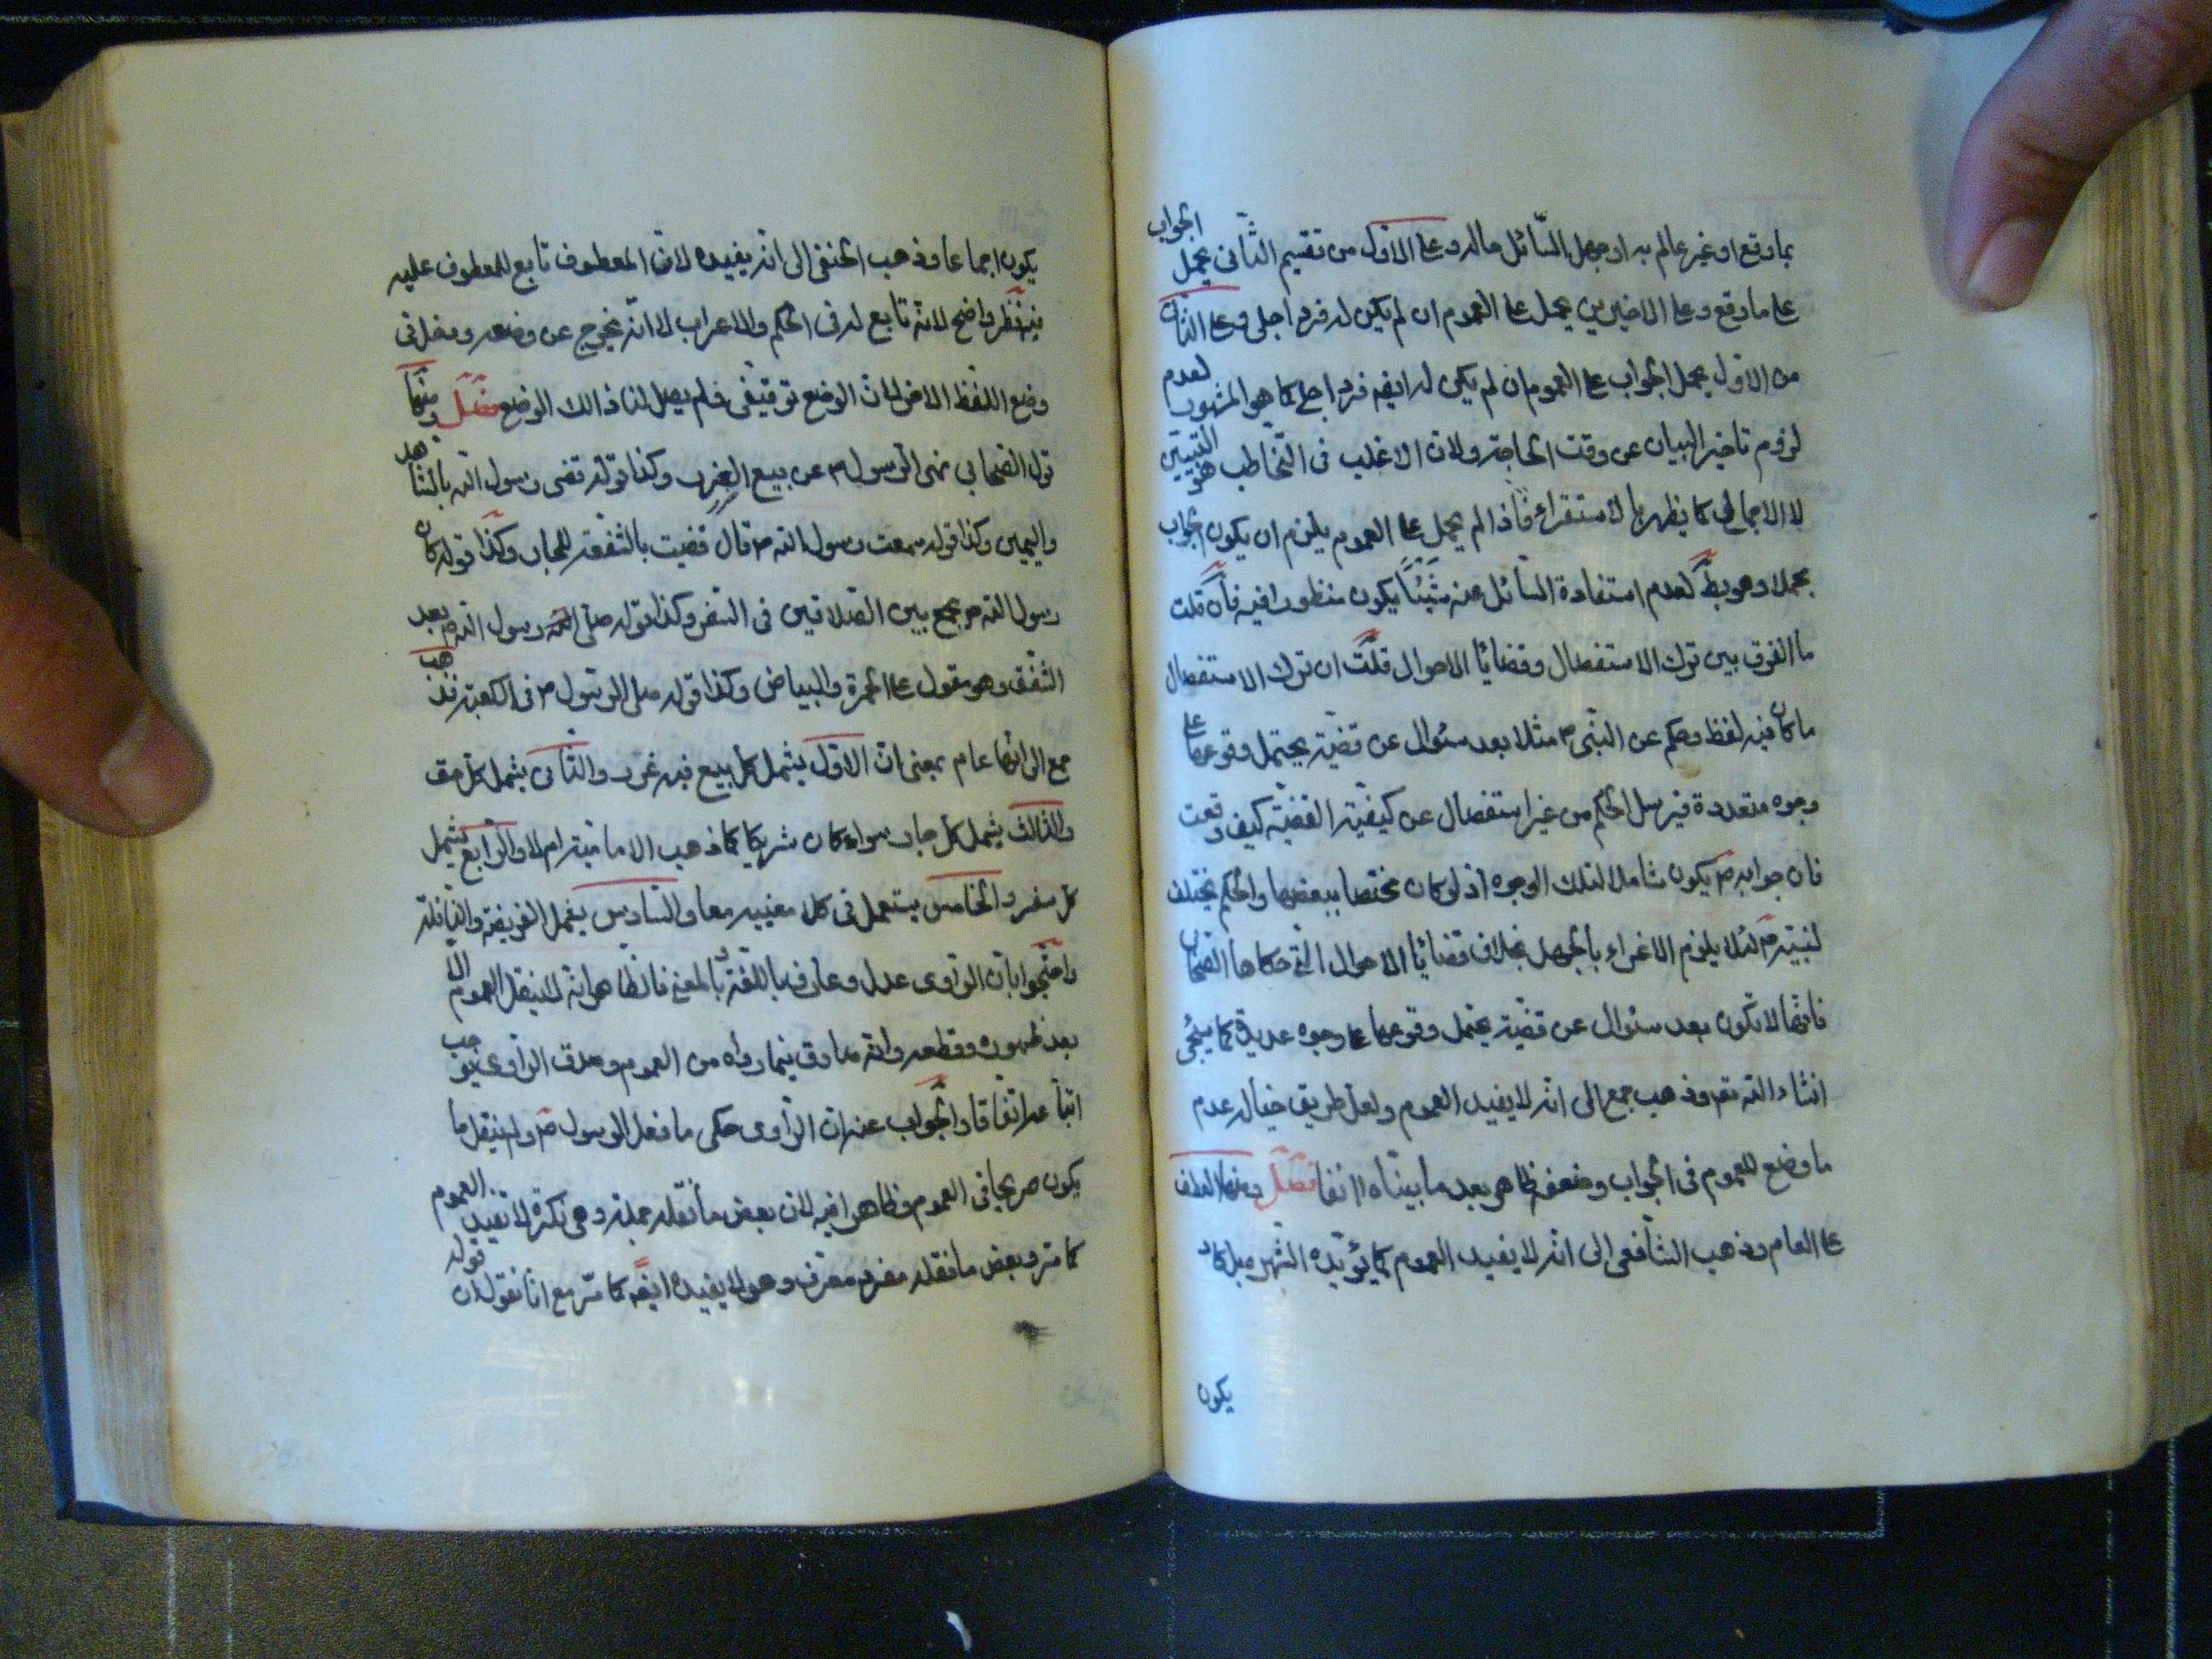 بما وقع او غير عالم به او جهل السّائل حاله وعلى الاوّل من تقسيم الثّانى يحمل الجواب
على ما وقع وعلى الاخيرين يحمل على العموم ان لم يكن له فرد اجلى وعلى الثانى
من الاوّل يحمل الجواب على العموم ان لم يكن له ايضه فرد اجلى كما هو المزبور لعدم
لزوم تاخير البيان عن وقت الحاجة ولانّ الاغلب فى التّخاطب هو التبيين
لا الاجمالى كما يظهر بالاستقراء فاذا لم يحمل على العموم يلزم ان يكون الجواب
مجملا وهو بط لعدم استفادة السّائل عنه شيئاً يكون منظورا فيه فان قلت
ما الفرق بين ترك الاستفصال وقضايا الاحوال قلت ان ترك الاستفصال
ما كان فيه لفظ وحكم عن النّبىّ ص مثلا بعد سئوال عن قضيّة يحتمل وقوعها على
وجوه متعددة فيرسل الحكم من غير استفصال عن كيفيّة القضيّة كيف وقعت
فان جوابه ص يكون شاملا لتلك الوجوه اذ لو كان مختصا ببعضها والحكم يختلف
لبيّنه ص لئلا يلزم الاغراء بالجهل بخلاف قضايا الاحوال الّتى حكاها الصّحابى
فانّها لا تكون بعد سئوال عن قضيّة يحتمل وقوعها على وجوه عديدة كما سيجئ
انشاء الله تعه وذهب جمع الى انّه لا يفيد العموم ولعل طريق خياله عدم
ما وضع للعموم فى الجواب وضعفه ظاهر بعد ما بيّناه انفا فصل ومنها العطف
على العام وذهب الشّافعى الى انّه لا يفيد العموم كما يؤيّده الشّهرة بل كاد
يكون
يكون اجماعا وذهب الحنفى الى انّه يفيده لانّ المعطوف تابع للمعطوف عليه
فيه نظر واضح لانّه تابع له فى الحكم والاعراب لا انّه يخرج عن وضعه ويدخل فى
وضع اللّفظ الاخر لانّ الوضع توقيفى فلم يصل لنا ذالك الوضع فصل ومنها
قول الصّحابي نهى الرّسول ص عن بيع الغرر وكذا قوله قضى رسول الله بالشّاهد
واليمين وكذا قوله سمعت رسول الله ص قال قضيت بالشّفعة للجار وكذا قوله كان
رسول الله ص يجمع بين الصّلاتين فى السّفر وكذا قوله صلّى رسول الله ص بعد
الشّفق وهو مقول على الحمرة والبياض وكذا قوله صلى الرّسول ص فى الكعبة فذهب
جمع الى انّها عام بمعنى انّ الاوّل يشمل كلّ بيع فيه غرر والثّانى يشمل كلّ حق
والثّالث يشمل كلّ جار سواء كان شريكا كما ذهب الاماميّة ام لا والرّابع يشمل
كلّ سفر والخامس يستعمل فى كلا معنييه معا والسّادس يشمل الفريضة والنّافلة
واحتجّوا بانّ الرّاوى عدل وعارف باللّغة وبالمعنى فالظاهر انّه لا ينقل العموم الّا
بعد ظهوره وقطعه وانّه صادق فيما رواه من العموم وصدق الرّاوى يوجب
اتّباعه اتّفاقا والجواب عنه انّ الرّاوى حكى ما فعل الرّسول ص ولم ينقل ما
يكون صريحا فى العموم وظاهرا فيه لانّ بعض ما نقله جملة وهى نكرة لا تفيد العموم
كما مرّ وبعض ما نقله مفرد معرّف وهو لا يفيده ايضه كما مرّ مع انّا نقول انّ قوله